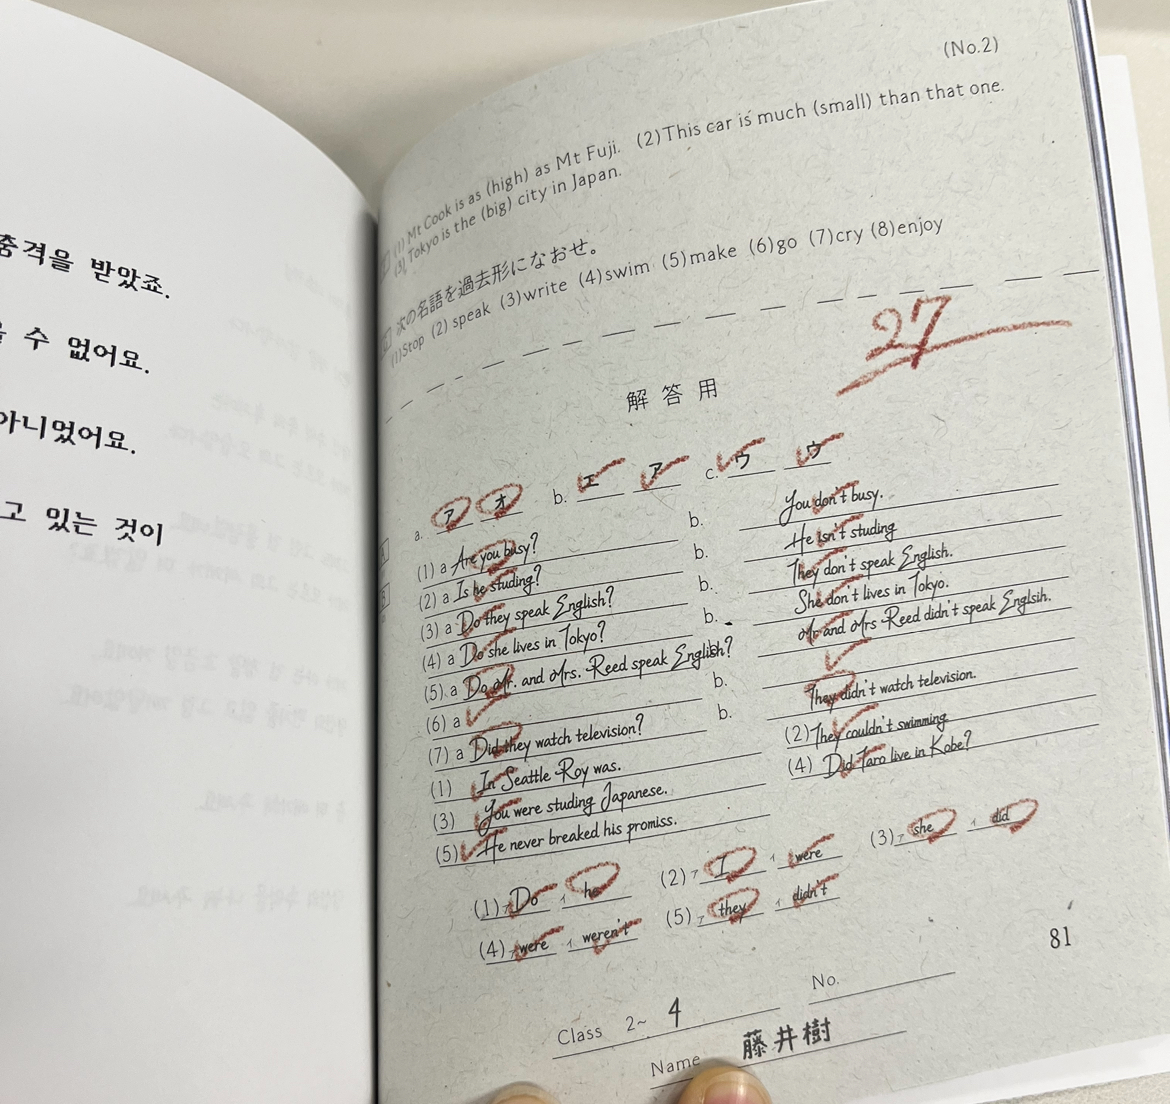 충격을 받았죠.
수 없어요.
아니었어요.
고 있는 것이
(No.2)
(1) Mt Cook is as (high) as Mt Fuji. (2)This car is much (small) than that one.
(3) Tokyo is the (big) city in Japan.
次の名語を過去形になおせ。
(1)Stop (2) speak (3)write (4)swim (5)make (6)go (7)cry (8)enjoy
27
解答用
a. ア オ b. エ ア c. ウ ウ
(1) a Are you busy? b. You don't busy.
(2) a Is he studing? b. He isn't studing
(3) a Do they speak English? b. They don't speak English.
(4) a Do she lives in Tokyo? b. She don't lives in Tokyo.
(5) a Do Mr. and Mrs. Reed speak English? b. Mr and Mrs Reed didn't speak Englsih.
(6) a b.
(7) a Did they watch television? b. They didn't watch television.
(1) In Seattle Roy was. (2) They couldn't swimming
(3) You were studing Japanese. (4) Did Taro live in Kobe?
(5) He never breaked his promiss.
(1) Do , he (2) I , were (3) she , did
(4) were , weren't (5) they , didn't
81
Class 2~ 4 No.
Name 藤井樹